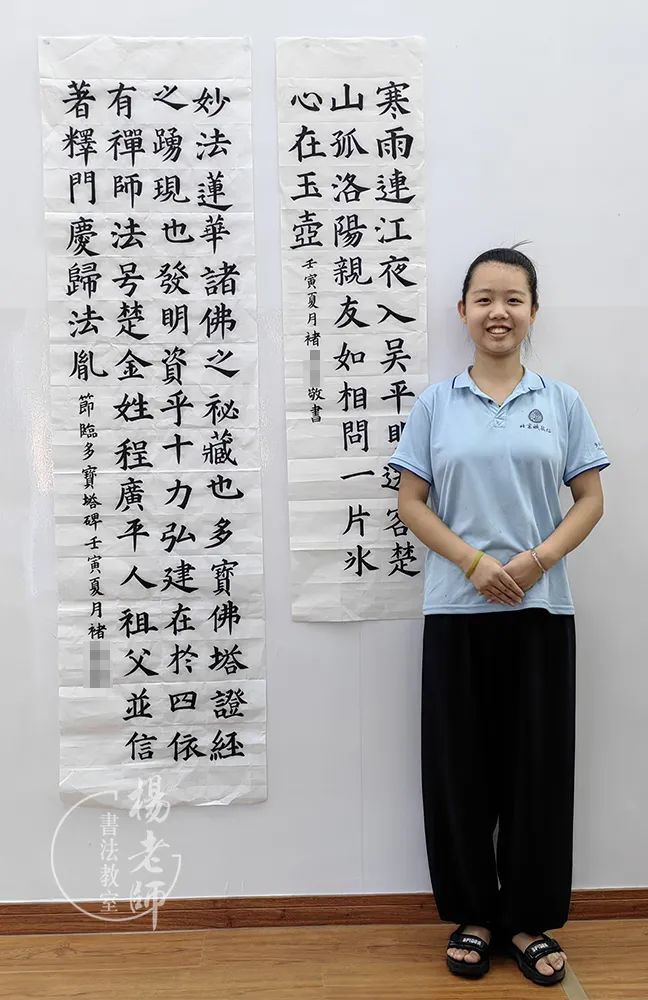 寒雨連江夜入吴平明送客楚
山孤洛陽親友如相問一片氷
心在玉壺
壬寅夏月褚 敬書
妙法蓮華諸佛之祕藏也多寶佛塔證経
之踴現也發明資乎十力弘建在於四依
有禪師法号楚金姓程廣平人祖父並信
著釋門慶歸法胤
節臨多寶塔碑壬寅夏月褚
楊老師
書法教室